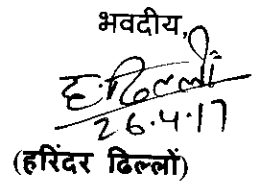 भवदीय,
ह. ढिल्लों
26.4.17
(हरिंदर ढिल्लों)